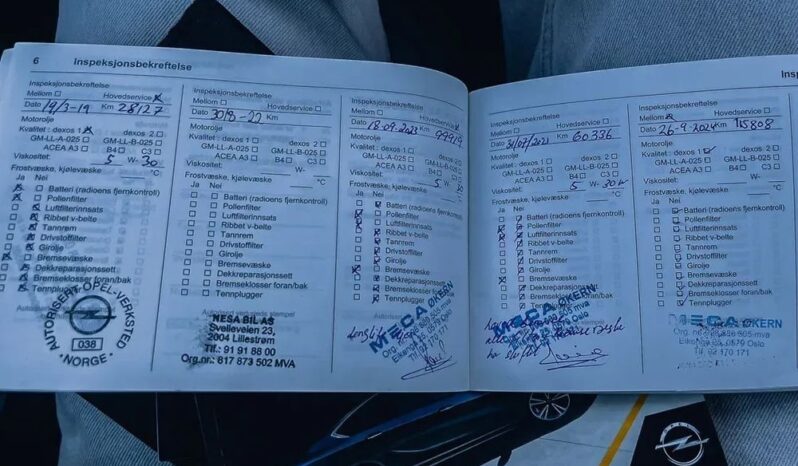 6 Inspeksjonsbekreftelse
Inspeksjonsbekreftelse
Mellom Hovedservice
Dato 19/3-19 Km 28127
Motorolje
Kvalitet : dexos 1 dexos 2
GM-LL-A-025 GM-LL-B-025
ACEA A3 B4 C3
Viskositet: 5 W- 30
Frostvæske, kjølevæske °C
Ja Nei
Batteri (radioens fjernkontroll)
Pollenfilter
Luftfilterinnsats
Ribbet v-belte
Tannrem
Drivstoffilter
Girolje
Bremsevæske
Dekkreparasjonssett
Bremseklosser foran/bak
Tennplugger
AUTORISERT OPEL-VERKSTED
038
NORGE
Inspeksjonsbekreftelse
Mellom Hovedservice
Dato 30/8-22 Km
Motorolje
Kvalitet : dexos 1 dexos 2
GM-LL-A-025 GM-LL-B-025
ACEA A3 B4 C3
Viskositet: W-
Frostvæske, kjølevæske °C
Ja Nei
Batteri (radioens fjernkontroll)
Pollenfilter
Luftfilterinnsats
Ribbet v-belte
Tannrem
Drivstoffilter
Girolje
Bremsevæske
Dekkreparasjonssett
Bremseklosser foran/bak
Tennplugger
NESA BIL AS
Svelleveien 23,
2004 Lillestrøm
Tlf.: 91 91 88 00
Org.nr.: 817 873 502 MVA
Inspeksjonsbekreftelse
Mellom Hovedservice
Dato 18-09-2023 Km 99919
Motorolje
Kvalitet : dexos 1 dexos 2
GM-LL-A-025 GM-LL-B-025
ACEA A3 B4 C3
Viskositet: 5 W- 30
Frostvæske, kjølevæske °C
Ja Nei
Batteri (radioens fjernkontroll)
Pollenfilter
Luftfilterinnsats
Ribbet v-belte
Tannrem
Drivstoffilter
Girolje
Bremsevæske
Dekkreparasjonssett
Bremseklosser foran/bak
Tennplugger
MECA ØKERN
Inspeksjonsbekreftelse
Mellom Hovedservice
Dato 30/07/2021 Km 60336
Motorolje
Kvalitet : dexos 1 dexos 2
GM-LL-A-025 GM-LL-B-025
ACEA A3 B4 C3
Viskositet: 5 W- 30
Frostvæske, kjølevæske °C
Ja Nei
Batteri (radioens fjernkontroll)
Pollenfilter
Luftfilterinnsats
Ribbet v-belte
Tannrem
Drivstoffilter
Girolje
Bremsevæske
Dekkreparasjonssett
Bremseklosser foran/bak
Tennplugger
MECA ØKERN
Insp
Inspeksjonsbekreftelse
Mellom Hovedservice
Dato 26-9-2024 Km 115808
Motorolje
Kvalitet : dexos 1 dexos 2
GM-LL-A-025 GM-LL-B-025
ACEA A3 B4 C3
Viskositet: W-
Frostvæske, kjølevæske °C
Ja Nei
Batteri (radioens fjernkontroll)
Pollenfilter
Luftfilterinnsats
Ribbet v-belte
Tannrem
Drivstoffilter
Girolje
Bremsevæske
Dekkreparasjonssett
Bremseklosser foran/bak
Tennplugger
MECA ØKERN